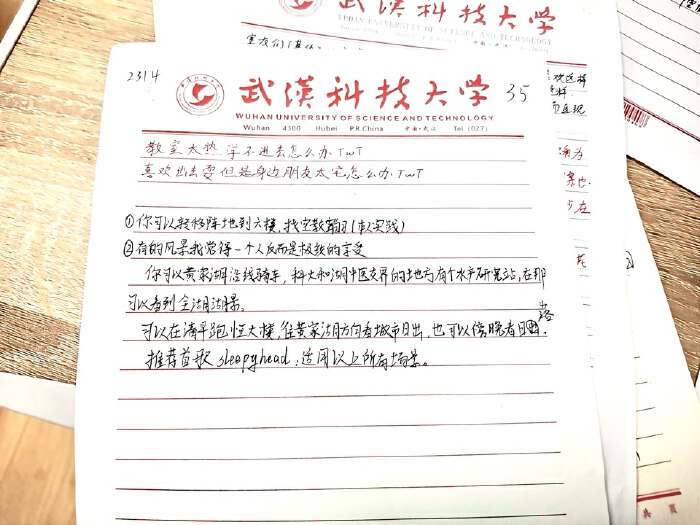 武汉科技大学
WUHAN UNIVERSITY OF SCIENCE AND TECHNOLOGY
室友们
2314
武漢科技大学
35
WUHAN UNIVERSITY OF SCIENCE AND TECHNOLOGY
Wuhan 4300 Hubei P.R.China 中南·武汉 Tel (027)
教室太热学不进去怎么办 TwT
喜欢出去耍但是身边朋友太宅怎么办 TwT
①你可以转移阵地到大楼,找空教室自习(本人实践)
②有的风景我觉得一个人反而是极致的享受
你可以黄家湖沿线骑车,科大和湖中医交界的地方有个水产研究站,在那
可以看到全湖湖景。
可以在清早跑恒大楼,往黄家湖方向看城市日出,也可以傍晚看日落.
推荐首歌 sleepyhead:适用以上所有场景。
欢这样
怎样
而在
共 页